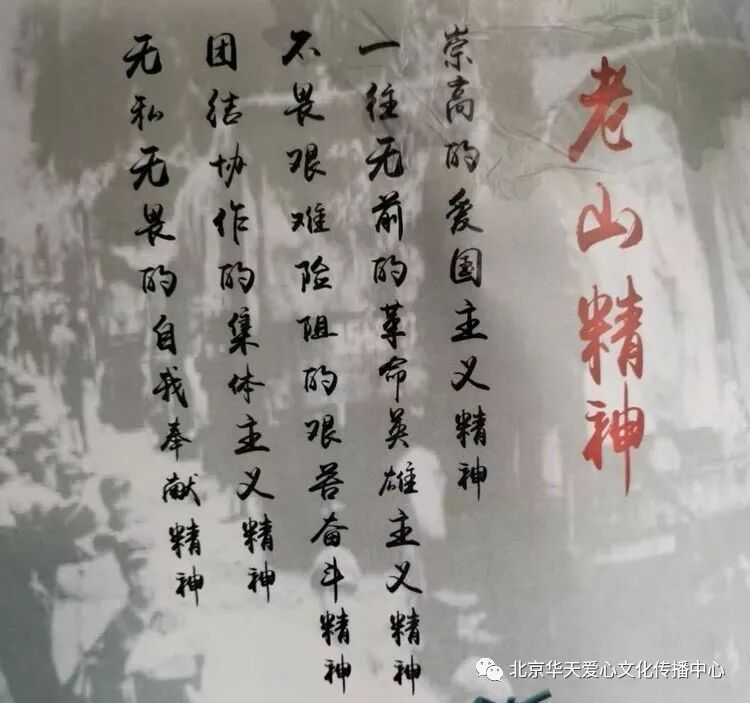 老山精神
崇高的爱国主义精神
一往无前的革命英雄主义精神
不畏艰难险阻的艰苦奋斗精神
团结协作的集体主义精神
无私无畏的自我奉献精神
北京华天爱心文化传播中心